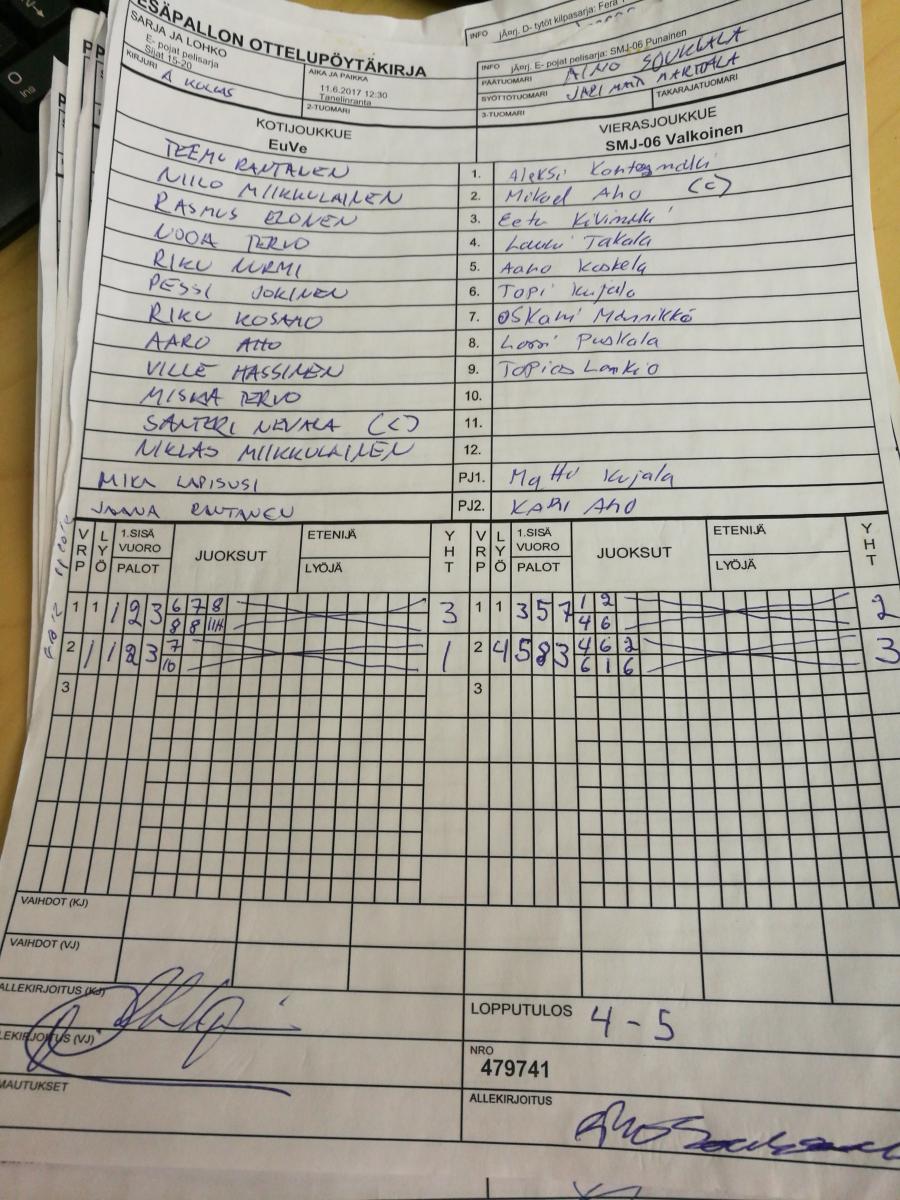 ESÄPALLON OTTELUPÖYTÄKIRJA
SARJA JA LOHKO
E- pojat pelisarja
Sijat 15-20
AIKA JA PAIKKA
11.6.2017 12:30
Tanelinranta
KIRJURI
A KUKAS
2-TUOMARI
INFO jÄerj. D- tytöt kilpasarja: Fera
INFO jÄerj. E- pojat pelisarja: SMJ-06 Punainen
PÄÄTUOMARI AINO SOUKKALA
SYÖTTÖTUOMARI JARI MATI MARTTALA
3-TUOMARI
TAKARAJATUOMARI
KOTIJOUKKUE
EuVe
VIERASJOUKKUE
SMJ-06 Valkoinen
TEEMU RANTANEN 1. Aleksi
NIILO MIIKKULAINEN 2. Mikael Aho (C)
RASMUS ELONEN 3. Eetu Kivimäki
NOOA TERVO 4. Lauri Takala
RIKU NURMI 5. Aaro Koskela
PESSI JOKINEN 6. Topi Kujala
RIKU KOSAMO 7. OSKARI Männikkö
AARO AHO 8. Lassi Puskala
VILLE HASSINEN 9. Topias Lankio
MISKA TERVO 10.
SANTERI NEVALA (C) 11.
NIKLAS MIIKKULAINEN 12.
MIKA LAPISUSI PJ1. Matti Kujala
JAANA RANTANEN PJ2. KARI AHO
VRP LYÖ 1.SISÄ VUORO PALOT JUOKSUT ETENIJÄ LYÖJÄ YHT VRP LYÖ 1.SISÄ VUORO PALOT JUOKSUT ETENIJÄ LYÖJÄ YHT
1 1 1 2 3 6 7 8 3 1 1 3 5 7 1 2 2
8 8 11H 4 6
2 1 1 2 3 7 1 2 4 5 8 3 4 6 2 3
10 6 1 6
3 3
VAIHDOT (KJ)
VAIHDOT (VJ)
ALLEKIRJOITUS (KJ)
LEKIRJOITUS (VJ)
MAUTUKSET
LOPPUTULOS 4-5
NRO
479741
ALLEKIRJOITUS